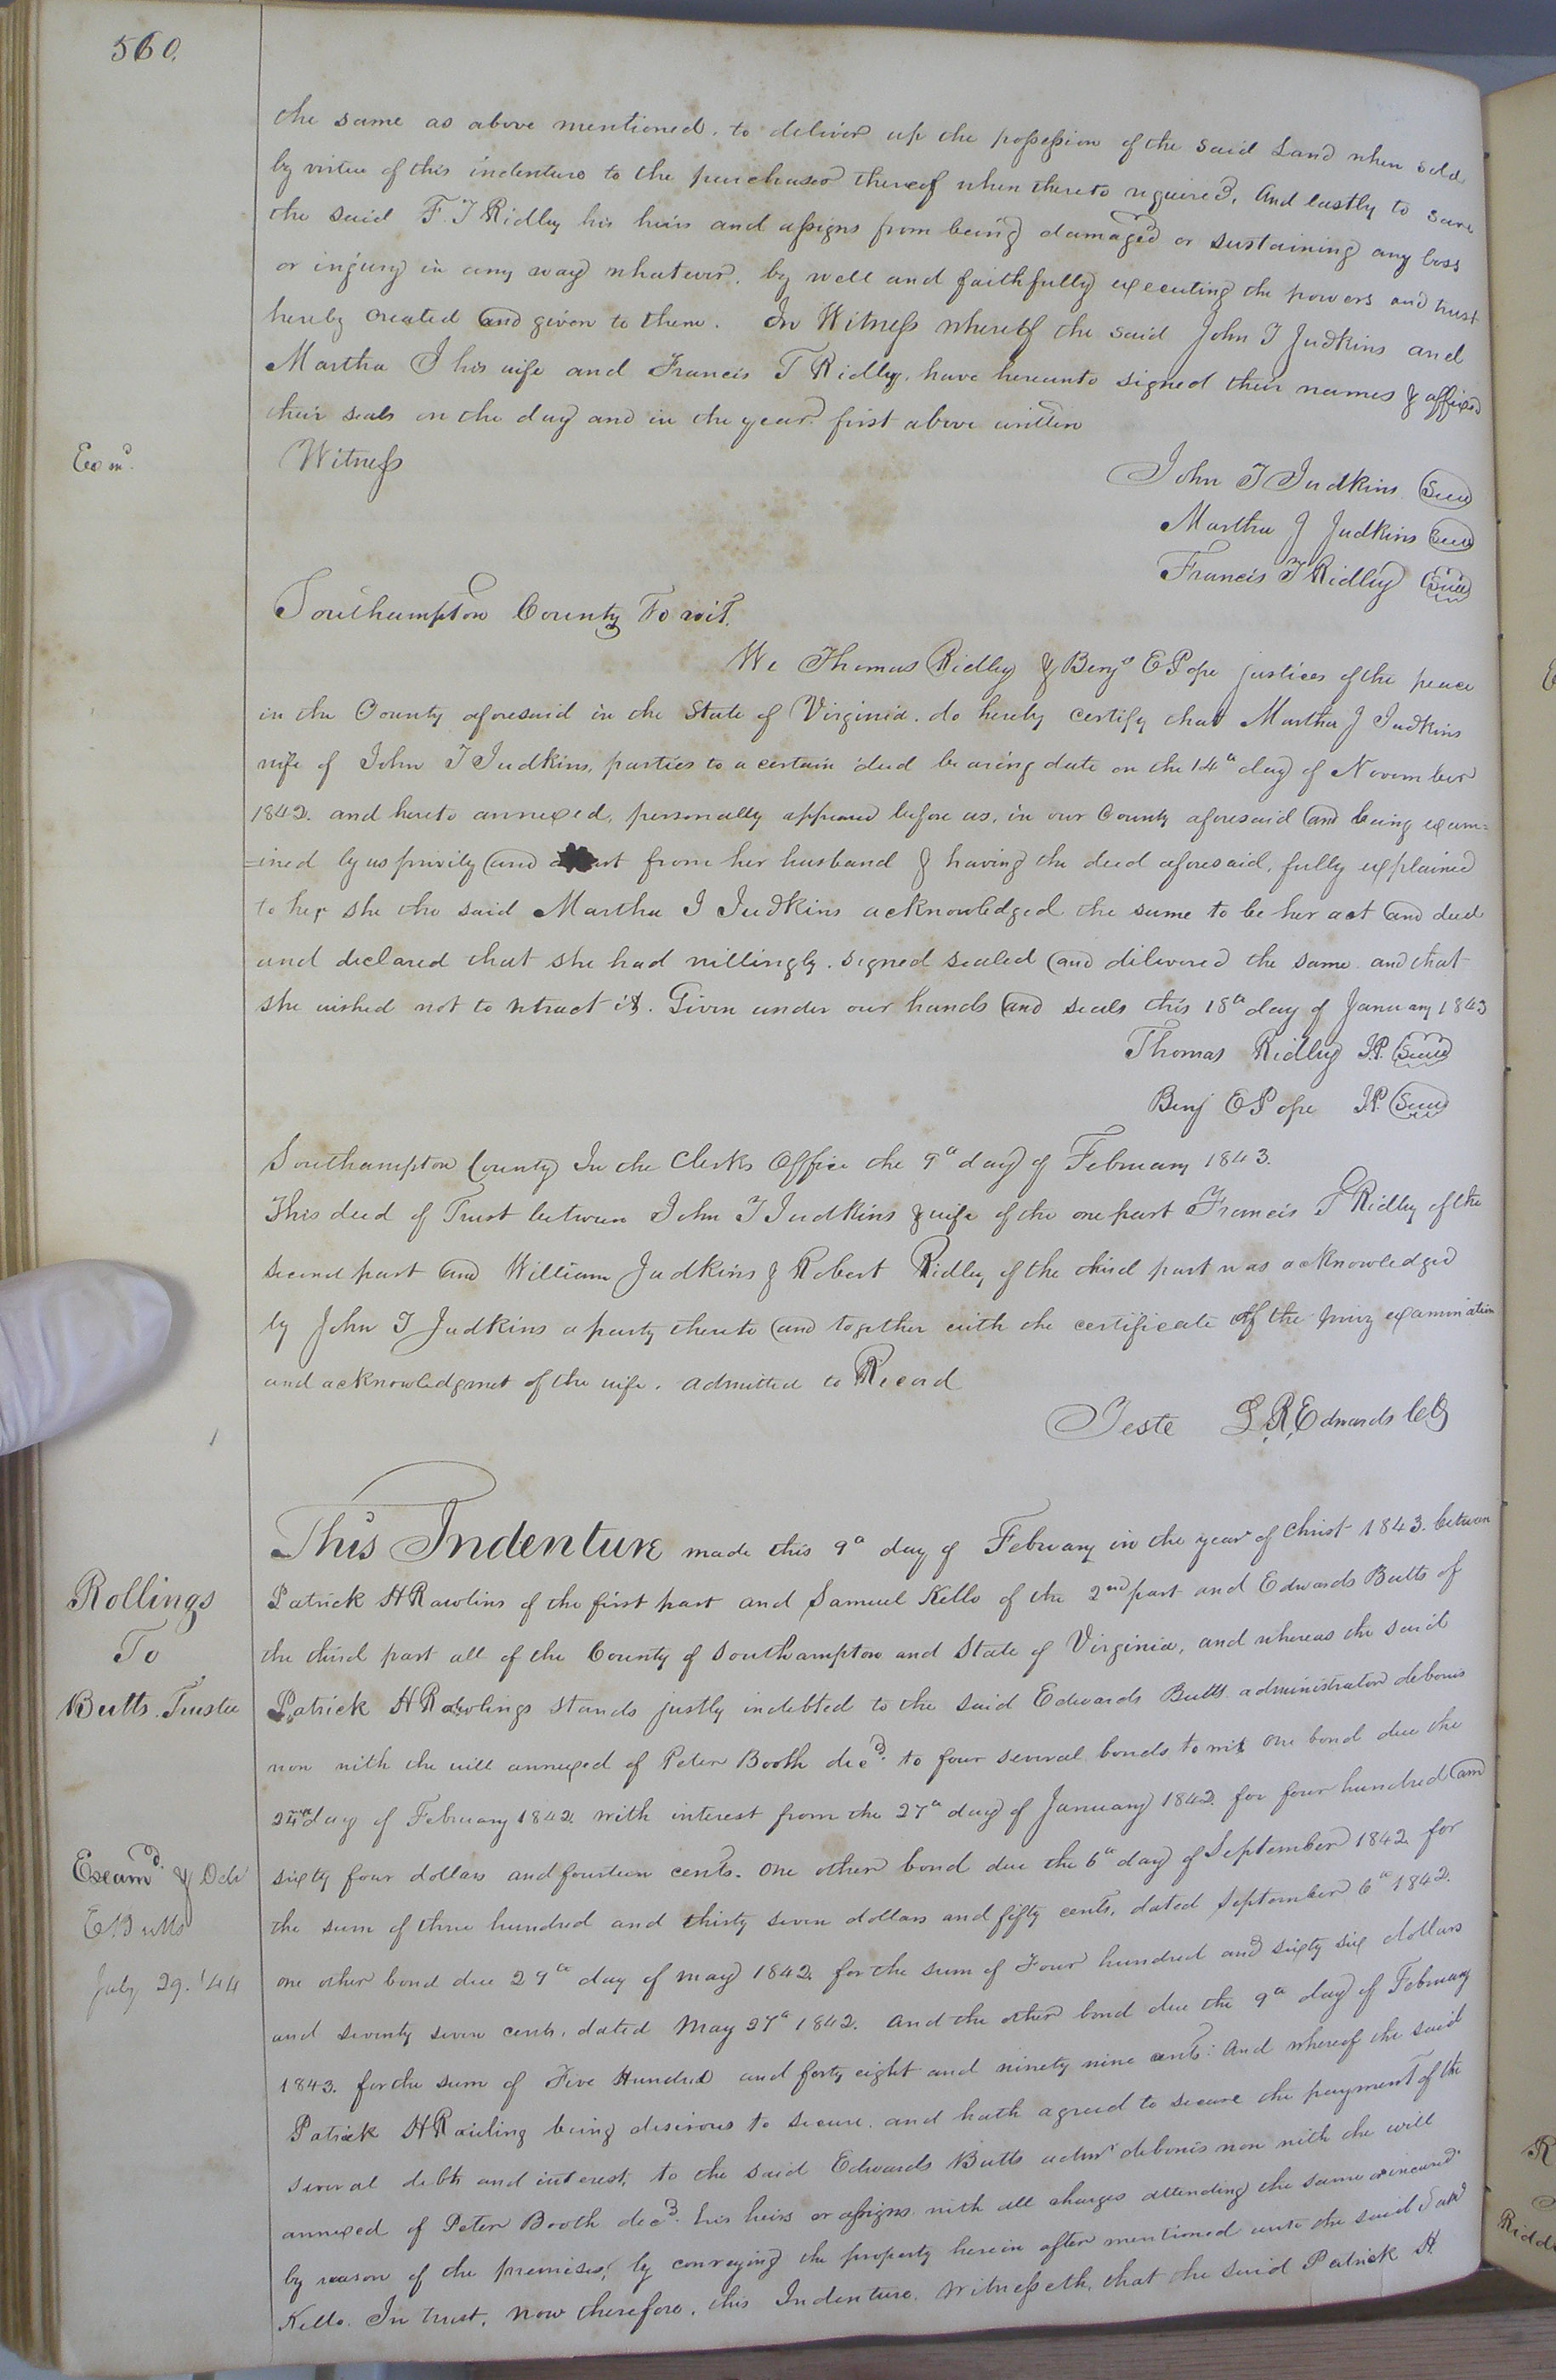 560.
the same as above mentioned. to deliver up the possession of the said Land when sold
by virtue of this indenture to the purchaser thereof when thereto required, And lastly to save
the said F. T Ridley his heirs and assigns from being damaged or sustaining any loss
or injury in any way whatever. by well and faithfully executing the powers and trust
hereby created and given to them. In Witness whereof the said John T Judkins and
Martha J his wife and Francis T Ridley, have hereunto signed their names & affixed
their seals on the day and in the year first above written
Exmd.
Witness
John T Judkins Seal
Martha J Judkins Seal
Francis T Ridley Seal
Southampton County To wit.
We Thomas Ridley & Benja E Pope justices of the peace
in the County aforesaid in the State of Virginia. do hereby certify that Martha J Judkins
wife of John T Judkins, parties to a certain deed bearing date on the 14th day of November
1842. and hereto annexed, personally appeared before us, in our County aforesaid and being exam=
=ined by us privily and apart from her husband & having the deed aforesaid, fully explained
to her she the said Martha J Judkins acknowledged the same to be her act and deed
and declared that she had willingly. signed sealed and delivered the same and that
she wished not to retract it. Given under our hands and seals this 18th day of January 1843
Thomas Ridley J.P. Seal
Benj E Pope J.P. Seal
Southampton County In the Clerks Office the 9th day of February 1843.
This deed of Trust between John T Judkins & wife of the one part Francis T Ridley of the
second part and William Judkins & Robert Ridley of the third part was acknowledged
by John T Judkins a party thereto and together with the certificate of the privy examination
and acknowledgment of the wife. admitted to Record
Teste L.R. Edwards Clk
This Indenture made this 9th day of February in the year of Christ 1843. between
Rollings
To
Butts Trustee
Patrick H Rawlins of the first part and Samuel Kello of the 2nd part and Edwards Butts of
the third part all of the County of Southampton and State of Virginia, and whereas the said
Patrick H Rawlings stands justly indebted to the said Edwards Butts administrator debonis
non with the will annexed of Peter Booth decd. to four several bonds to wit One bond due the
24th day of February 1842. with interest from the 27th day of January 1842. for four hundred and
Examd. & Deld
E Butts
July 29. '44
sixty four dollars and fourteen cents. One other bond due the 6th day of September 1842 for
the sum of three hundred and thirty seven dollars and fifty cents, dated September 6th 1842.
one other bond due 29th day of may 1842. for the sum of Four hundred and sixty six dollars
and seventy seven cents, dated May 27th 1842. And the other bond due the 9th day of February
1843. for the sum of Five Hundred and forty eight and ninety nine cents: And whereof the said
Patrick H Rawling being desirous to secure. and hath agreed to secure the payment of the
several debts and interest, to the said Edwards Butts admr debonis non with the will
annexed of Peter Booth decd. his heirs or assigns with all charges attending the same or incurred
by reason of the premises, by conveying the property herein after mentioned unto the said Saml
Kello. In trust, Now therefore, this Indenture. Witnesseth, that the said Patrick H.